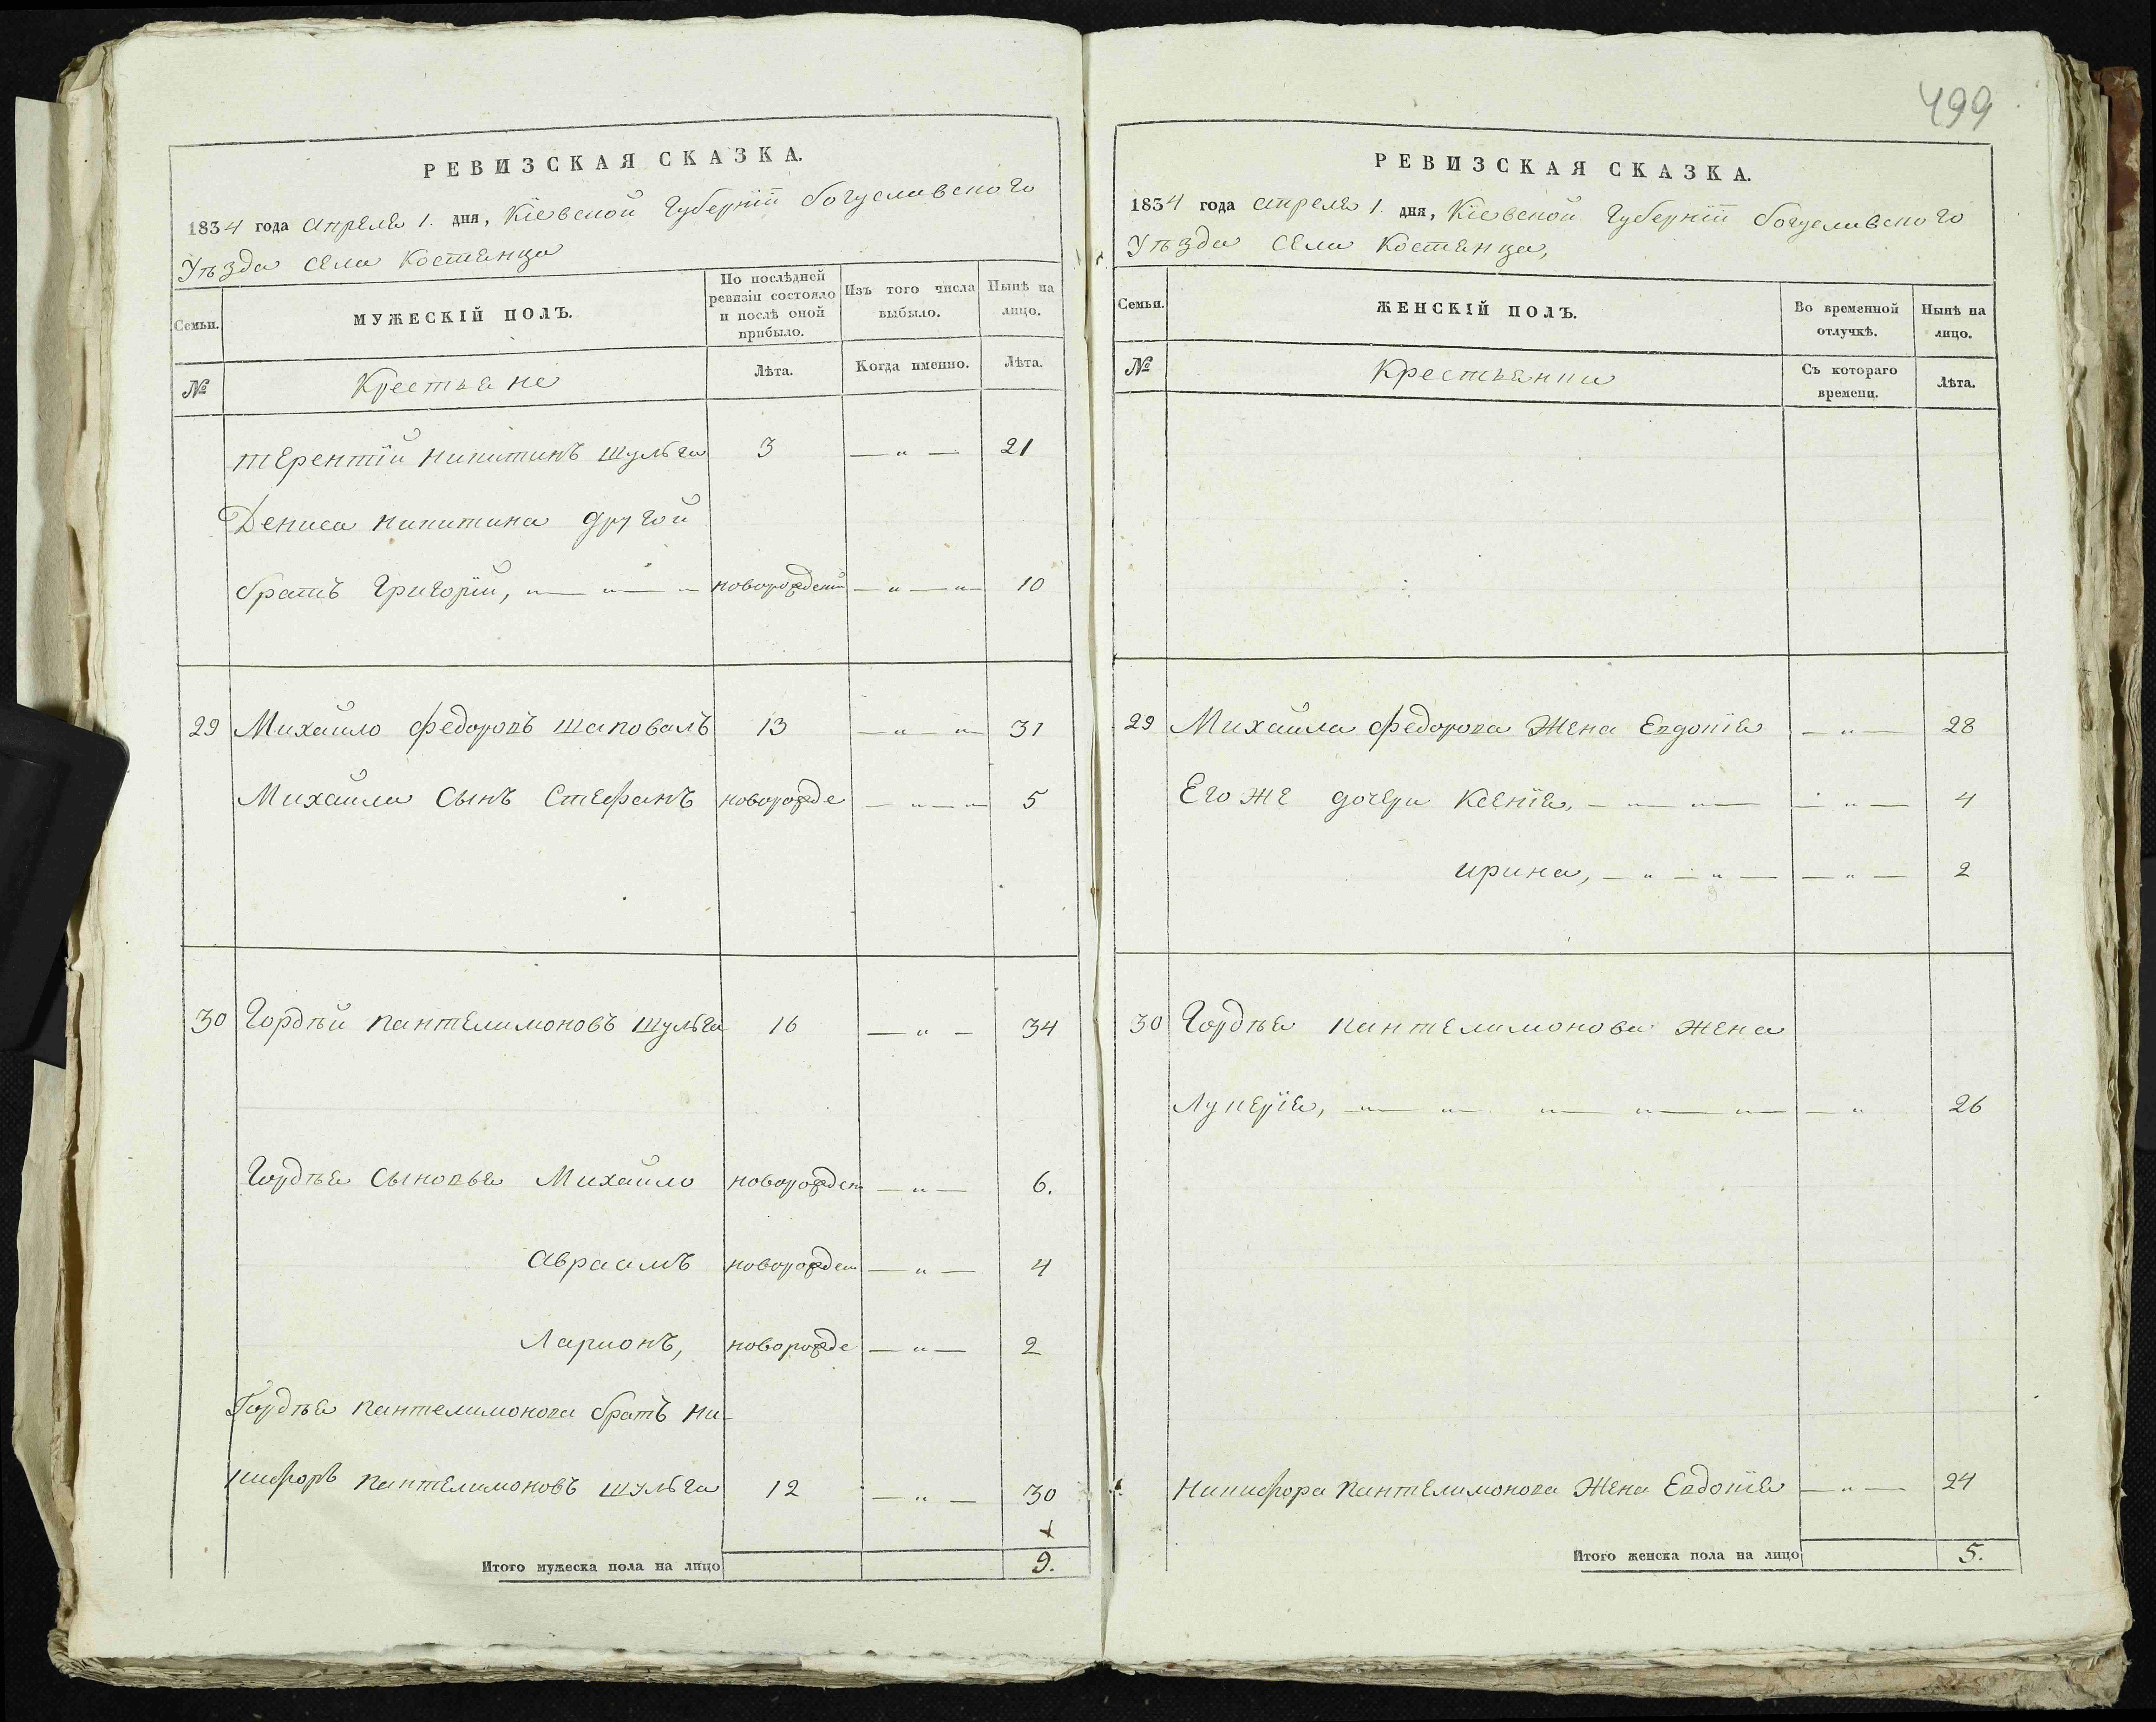 499
РЕВИЗСКАЯ СКАЗКА.
1834 года апреля 1. дня, Кіевской Губерніи богуславского
Уѣзда села Костянца
Семьи.
МУЖЕСКІЙ ПОЛЪ.
По послѣдней ревизіи состояло и послѣ оной прибыло.
Изъ того числа выбыло.
Нынѣ на лицо.
№
Крестьяне
Лѣта.
Когда именно.
Лѣта.
терентій никитинъ шульга 3 — " — 21
Дениса никитина другой
братъ григорій, " — " — " новорожденй — " — " — 10
29 Михайло федоровъ шаповалъ 13 — " — " — 31
Михайла сынъ Стефанъ новорожде — " — " — 5
30 Гордѣй пантелимоновъ шульга 16 — " — 34
Гордѣя сыновья Михайло новорожден — " — 6.
авраамъ новорожден — " — 4
Ларионъ, новорожде — " — 2
Гордѣя пантелимонова братъ ни-
кифоръ пантелимоновъ шульга 12 — " — 30
Итого мужеска пола на лицо 9.
РЕВИЗСКАЯ СКАЗКА.
1834 года апреля 1. дня, Кіевской Губерніи богуславского
Уѣзда села Костянца,
Семьи.
ЖЕНСКІЙ ПОЛЪ.
Во временной отлучкѣ.
Нынѣ на лицо.
№
Крестьянки
Съ котораго времени.
Лѣта.
29 Михайла федорова Жена Евдокія — " — 28
Его же дочери Ксенія, — " — " — — " — 4
ирина, — " — " — — " — 2
30 Гордѣя пантелимонова жена
Лукерія, — " — " — " — " — " — — " 26
Никифора пантелимонова Жена Евдокія — " — 24
Итого женска пола на лицо 5.